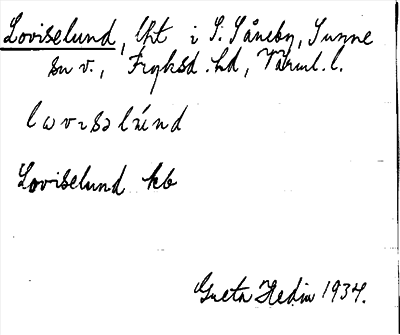 Loviselund, lht i S. Såneby, Sunne
sn v., Fryksd. hd, Värml. l.
Loviselund kb
Greta Hedin 1934.